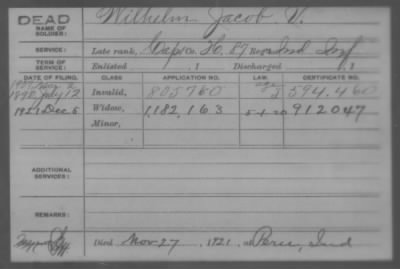 DEAD
Wilhelm Jacob V.
NAME OF SOLDIER:
SERVICE: Late rank, Co. 87 Ind Inf
TERM OF SERVICE: Enlisted , 1 Discharged , 1
DATE OF FILING. CLASS. APPLICATION NO. LAW. CERTIFICATE NO.
1890 July 12 Invalid, 805760 594.460
1921 Dec 5 Widow, 1,182,163 5-1-20 912047
Minor,
ADDITIONAL SERVICES:
REMARKS:
Died Nov-27, 1921, at Peru, Ind